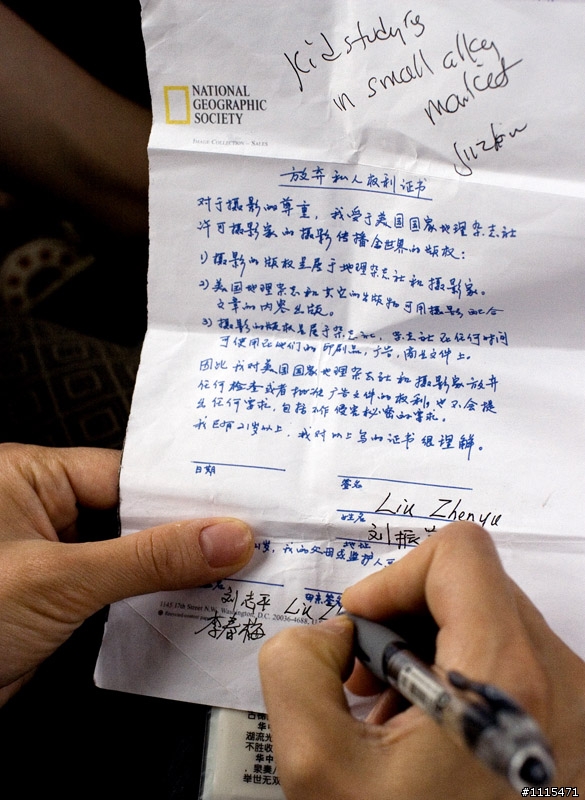 Kid studying
in small alley
market
NATIONAL
GEOGRAPHIC
SOCIETY
IMAGE COLLECTION - SALES
放弃私人权利证书
对于摄影的尊重，我受于美国国家地理杂志社
许可摄影家的摄影传播全世界的版权：
1) 摄影的版权是属于地理杂志社和摄影家。
2) 美国地理杂志和其它的出版物可用摄影配合
文章的内容出版。
3) 摄影的版权是属于杂志社，杂志社在任何时间
可使用在他们的印刷品，广告，商业文件上。
因此我对美国国家地理杂志社和摄影家放弃
任何检查或者批准广告文件的权利，也不会提
出任何要求，包括不作侵害秘密的要求。
我已有21岁以上，我对以上写的证书很理解。
日期
签名
Liu Zhenyu
姓名
刘振
地址
岁，我的父母或监护人
名
刘志平
Liu
1145 17th Street N.W., Washington, D.C. 20036-4688,
李春梅
华中
湖流光
不胜收
华中
泉奏
举世无双
#1115471